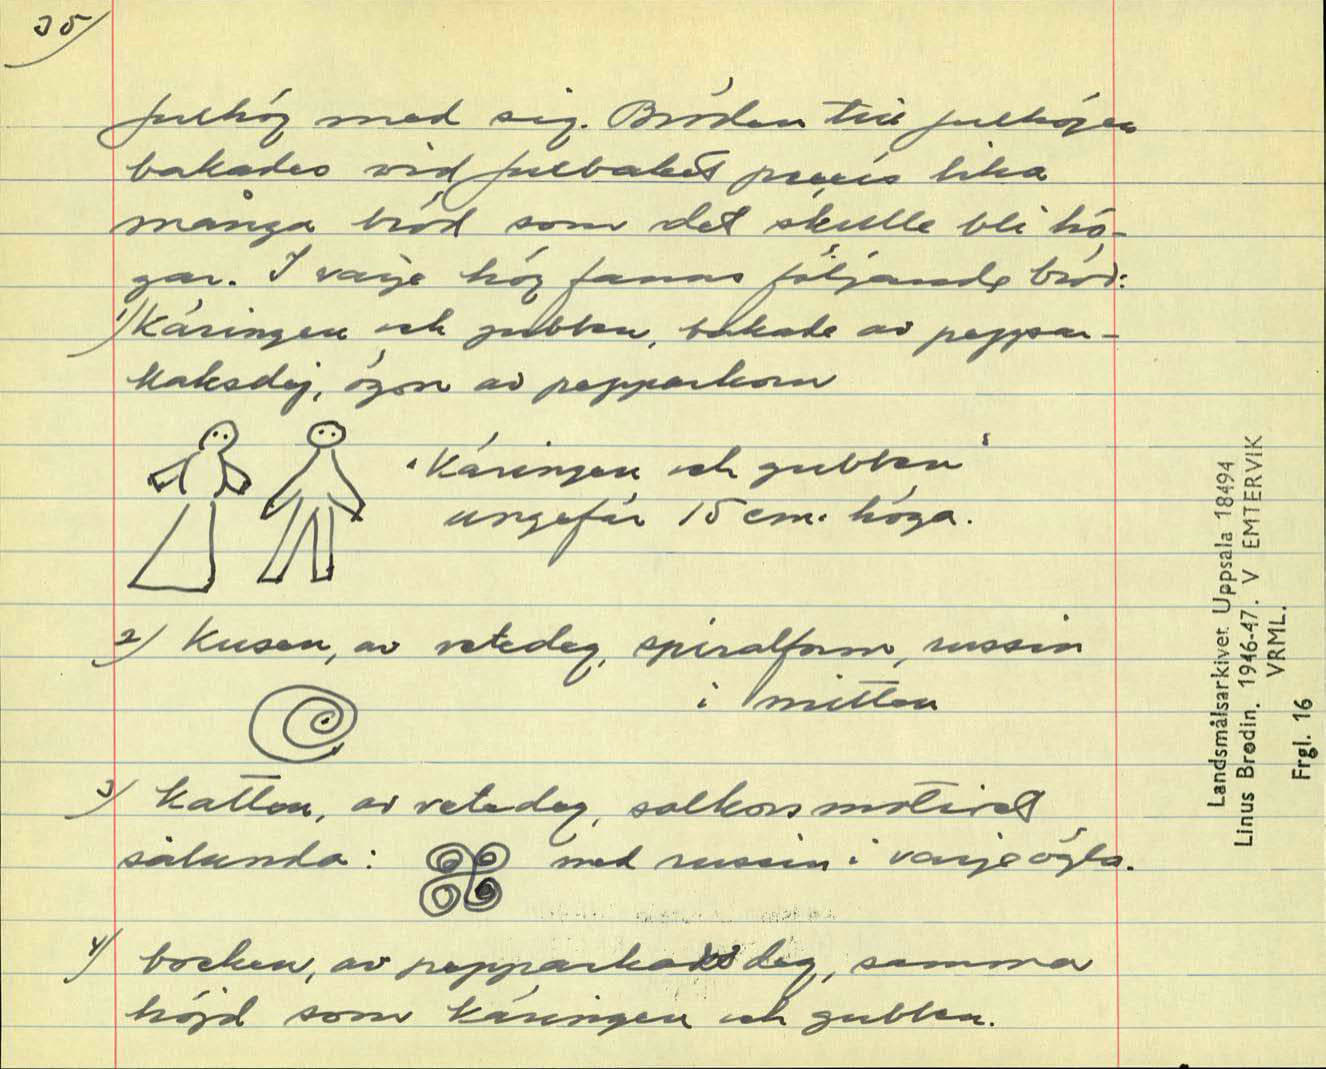 35)
julhög med sig. Bröden till julhögen
bakades vid julbaket precis lika
många bröd som det skulle bli hö-
gar. I varje hög fanns följande bröd:
1) Käringen och gubben, bakade av peppar-
kaksdeg, ögon av pepparkorn
"Käringen och gubben"
ungefär 15 cm. höga.
2) Kusen, av vetedeg, spiralform, russin
i mitten
3) Katten, av vetedeg, solkorsmotivet
sålunda: med russin i varje ögla.
4) bocken, av pepparkaksdeg, samma
höjd som käringen och gubben.
Landsmålsarkivet Uppsala 18494
Linus Brodin. 1946-47. V EMTERVIK
VRML.
Frgl. 16